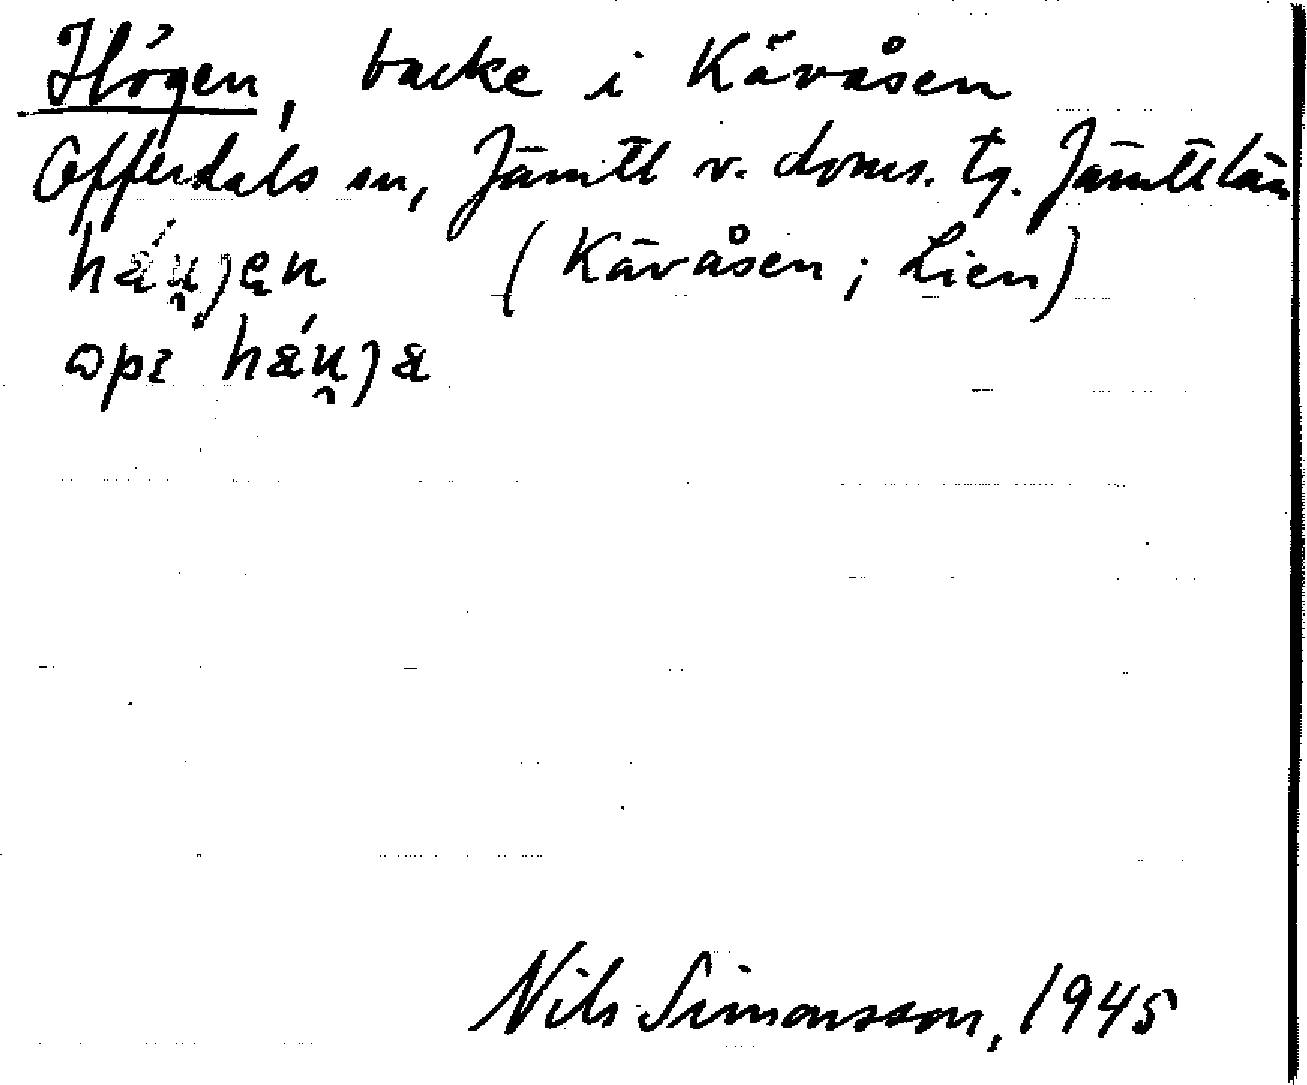 Högen, backe i Kävåsen
Offerdals sn, Jämtl v. doms. tg. Jämtl län
háu̯ȷen (Kävåsen; Lien)
opɪ háu̯ȷa
Nils Simonsson, 1945